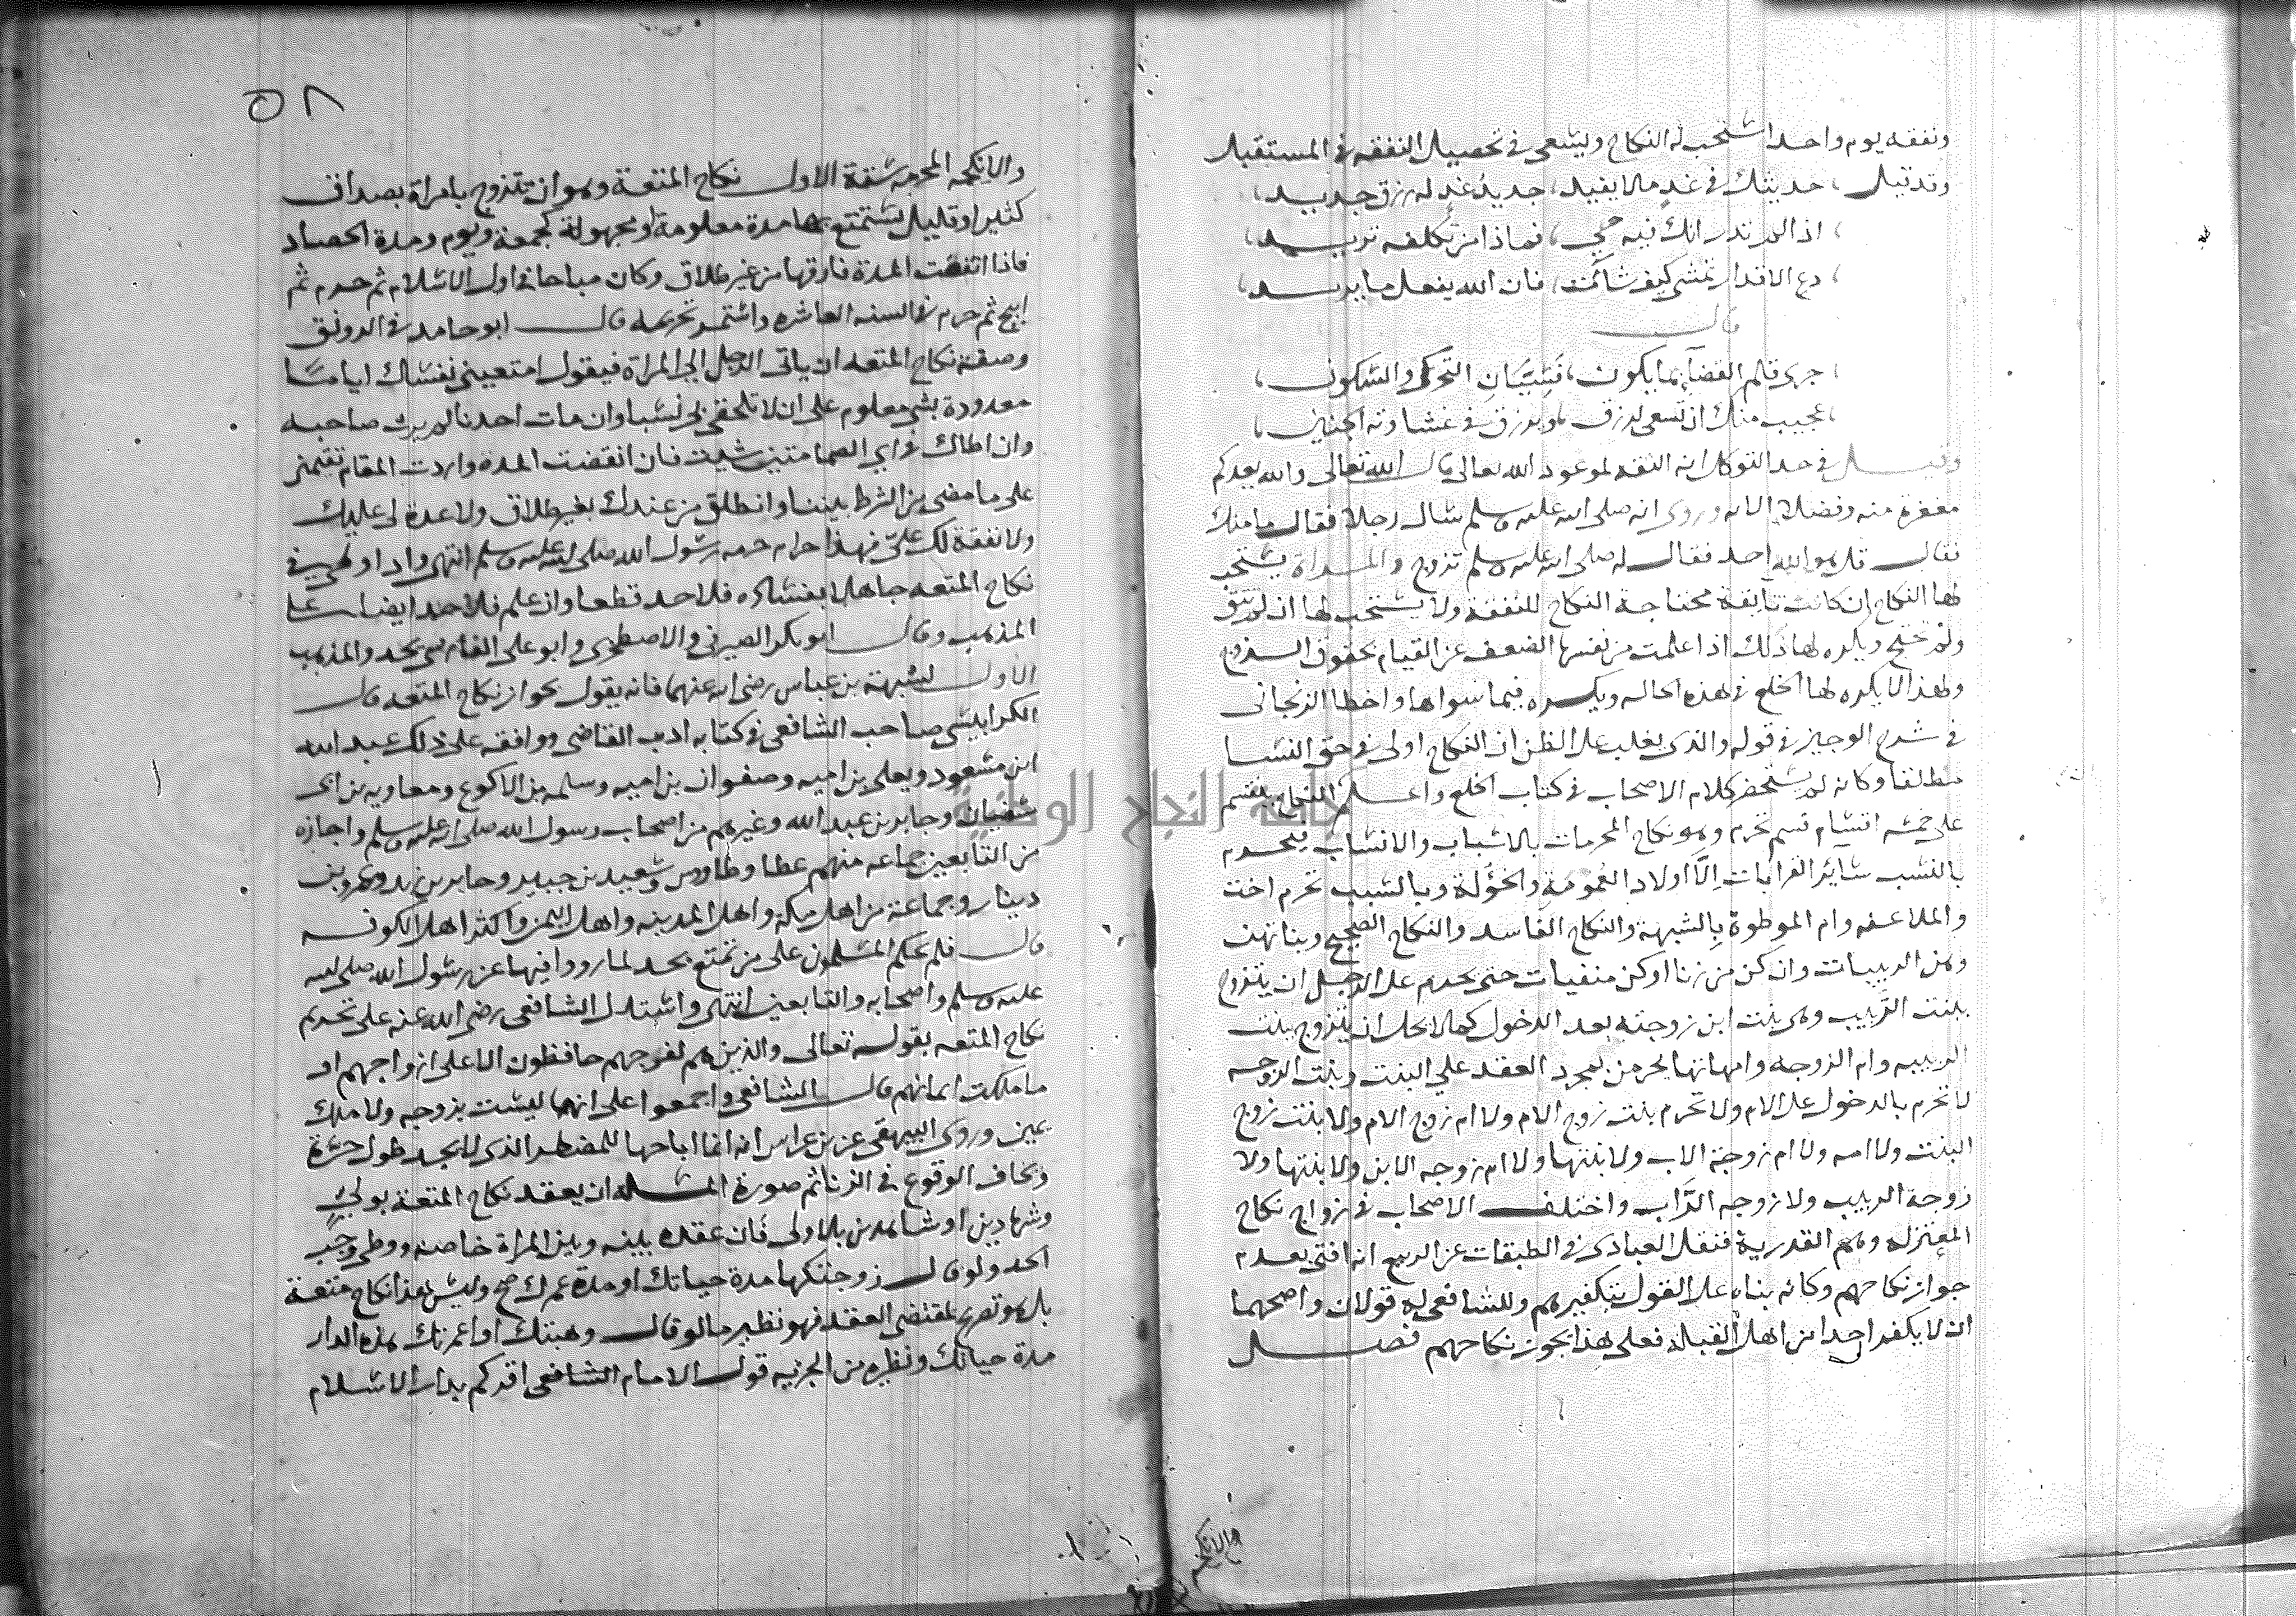 ونفقه يوم واحد استحب له النكاح ويسعى في تحصيل النفقه في المستقبل
وقد قيل ، حديثك في غد مالا يفيد ، جديد غد له رزق جديد ،
، اذا لم تدر انك فيه حي ، فماذا من تكلفه تريد ،
، دع الاقدار تمشي كيف شاءت ، فان الله يفعل ما يريد ،
قال
، جرى قلم القضاء بما يكون ، فسيان التحرك والسكون ،
، عجيب منك ان تسعى لرزق ، ويرزق في غشاوته الجنين ،
وقيل في حد التوكل انه الثقه لموعود الله تعالى قال الله تعالى والله يعدكم
مغفرة منه وفضلا الايه وروى انه صلى الله عليه وسلم سال رجلا فقال ما منك
فقال قل هو الله احد فقال له صلى الله عليه وسلم تزوج والمراة يستحب
لها النكاح ان كانت تايقة محتاجة النكاح للنفقة ولا يستحب لها ان لم تتق
ولم تحتج ويكره لها ذلك اذا علمت من نفسها الضعف عن القيام بحقوق الزوج
ولهذا لا يكره لها الخلع في هذه الحاله ويكره فيما سواها واخطا الزنجاني
في شرح الوجيز في قوله والذي يغلب على الظن ان النكاح اولى في حق النسا
مطلقا وكانه لم يستحضر كلام الاصحاب في كتاب الخلع واعلم النكاح ينقسم
على خمسه اقسام قسم تحرم وهو نكاح المحرمات بالاسباب والانساب فيحرم
بالنسب سائر القرابات الا اولاد العمومة والخؤلة وبالسبب تحرم اخت
والملاعنه وام الموطوة بالشبهة والنكاح الفاسد والنكاح الصحيح وبناتهن
وهن الربيبات وان كن من زنا او كن منفيات حتى يحرم على الرجل ان يتزوج
ببنت الربيب وهى بنت ابن زوجته بعد الدخول كما لا يحل ان يتزوج ببنت
الربيبه وام الزوجه وامهاتها يحرمن بمجرد العقد علي البنت وبنت الزوجه
لا تحرم بالدخول على الام ولا تحرم بنت زوج الام ولا ام زوج الام ولا بنت زوج
البنت ولا امه ولا ام زوجة الاب ولا بنتها ولا ام زوجه الابن ولا بنتها ولا
زوجة الربيب ولا زوجه الراب واختلف الاصحاب في زواج نكاح
المعتزله وهم القدرية فنقل العبادى في الطبقات عن الربيع انه افتى بعدم
جواز نكاحهم وكانه بناه على القول بتكفيرهم وللشافعي فيه قولان واصحهما
ان لا يكفر احدا من اهل القبله فعلى هذا يجوز نكاحهم فصل
والانكحه
٥٨
والانكحه المحرمه ستة الاول نكاح المتعة وهو ان يتزوج بامراة بصداق
كثير او قليل يستمتع بها مدة معلومة او مجهولة كجمعة ويوم ومدة الحصاد
فاذا انقضت المدة فارقها من غير طلاق وكان مباحا في اول الاسلام ثم حرم ثم
ابيح ثم حرم في السنه العاشره واستمر تحريمه قال ابو حامد في الرونق
وصفة نكاح المتعه ان ياتى الرجل الي المراة فيقول امتعيني نفسك اياما
معدودة بشي معلوم على ان لا تلحقي بي نسبا وان مات احدنا لم يرث صاحبه
وان اطاك في اي الصمامتين شيت فان انقضت المده واردت المقام تقيمي
على ما مضى من الشرط بيننا وانطلق من عندك بغير طلاق ولا عدة لى عليك
ولا نفقة لك علي فهذا حرام حرمه رسول الله صلى الله عليه وسلم انتهى واذا وطي في
نكاح المتعه جاهلا بفساده فلا حد قطعا وان علم فلا حد ايضا على
المذهب وقال ابو بكر الصيرفى والاصطخرى وابو على يحد والمذهب
الاول لشبهة بن عباس رضى الله عنهما فانه يقول بجواز نكاح المتعه قال
الكرابيسى صاحب الشافعى في كتابه ادب القاضى ووافقه على ذلك عبد الله
ابن مسعود ويعلى بن اميه وصفوان بن اميه وسلمه بن الاكوع ومعاويه بن ابى
سفيان وجابر بن عبد الله وغيرهم من اصحاب رسول الله صلى الله عليه وسلم واجازه
من التابعين جماعه منهم عطا وطاووس وسعيد بن جبير وجابر بن زيد وعمرو بن
دينار وجماعة من اهل مكة واهل المدينه واهل اليمن واكثر اهل الكوفه
قال فلم يحكم المسلمون على من تمتع بحد لما رووا فيها عن رسول الله صلى الله
عليه وسلم واصحابه والتابعين انتهى واستدل الشافعى رضى الله عنه على تحريم
نكاح المتعه بقوله تعالى والذين هم لفروجهم حافظون الا على ازواجهم او
ما ملكت ايمانهم قال الشافعى واجمعوا على انها ليست بزوجيه ولا ملك
يمين وروى البيهقى عن بن عباس انه انما اباحها للمضطر الذى لا يجد طول حرة
ويخاف الوقوع في الزنا ثم صورة المسله ان يعقد نكاح المتعة بولي
وشهادين او شاهدين بلا ولى فان عقده بينه وبين المراة خاصه ووطى وجب
الحد ولو قال زوجتكها مدة حياتك او مدة عمرك صح وليس هذا نكاح متعة
بل هو تصريح بمقتضى العقد فهو نظير ما لو قال وهبتك او اعمرتك هذه الدار
مدة حياتك ونظيره من الجزيه قول الامام الشافعى اقركم بدار الاسلام
جامعة النجاح الوطنية